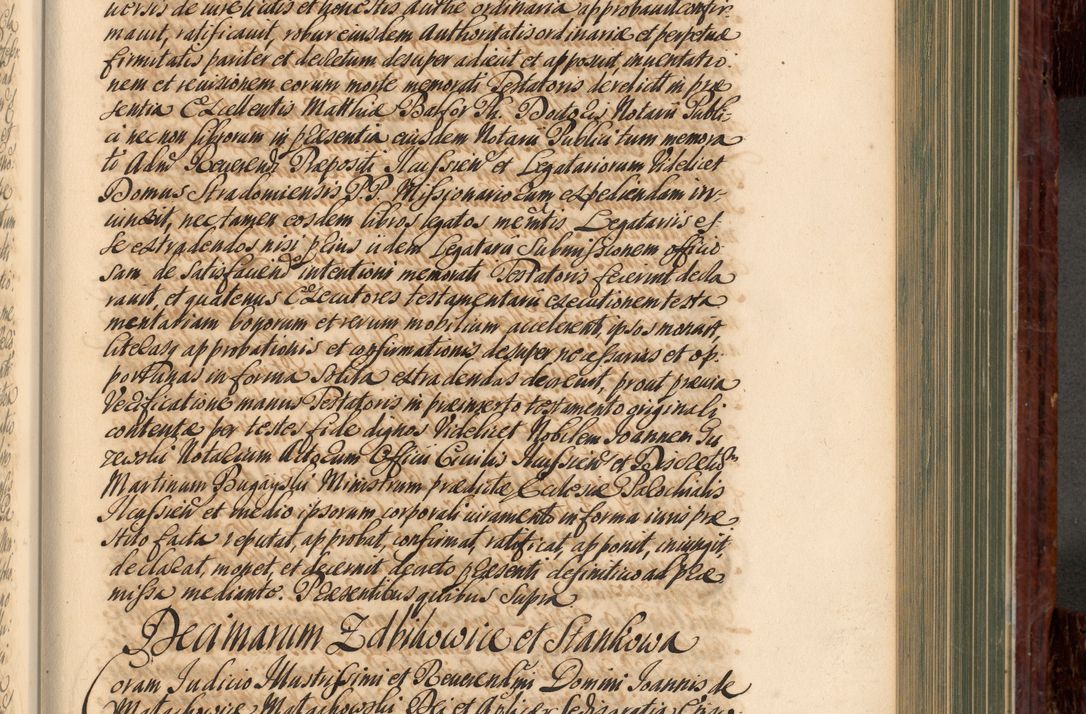 uersis de iure validis et honestis authte ordinaria approbauit confir-
mauit, ratificauit, robur eiusdem Authoritatis ordinariæ et perpetuæ
firmitatis pariter et decretum desuper adiecit et apposuit inuentatio-
nem et reuisionem eorum morte memorati Testatoris derelict in præ
sentia Excellentis Matthiæ Ph. Doctoris Notarii Publi-
ci nec non librorum in præsentia eiusdem Notarii Publici tum memora
ti Adm Reuerendi Præpositi Ilcussien et Legatariorum Videlicet
Domus Stradomiensis P.P. Missionariorum expediendam in-
iunxit, nec tamen eosdem libros legatos mentis Legatariis es-
se extradendos nisi prius iidem Legatarii submissionem officio
sam de satisfaciendo intentioni memorati Testatoris fecerint decla
rauit, et quatenus Executores testamentarii executionem testa
mentariam bonorum et rerum mobilium accelerent, ipsos monuit,
literasq approbationis et confirmationis desuper necessarias et op-
portunas in forma solita extradendas decreuit, prout præuia
Verificatione manus Testatoris in præinserto testamento originali
contentæ per testes fide dignos Videlicet Nobilem Joannem Gu
rewski Notarium Actorum Officii Ciuilis Ilcussien et Discretum
Martinum Bugayski Ministrum prædictæ Ecclesiæ Parochialis
Ilcussien et medio ipsorum corporali iuramento in forma iuris præ
stito facta reputat, approbat, confirmat, ratificat, apponit, iniungit,
declarat, monet, et decernit decreto præsenti definitiuo ad præ
missa mediante. Præsentibus quibus supra
Decimarum Zdbikowice et Stankowa
Coram Judicio Illustrissimi et Reuerendmi Domini Joannis de
Małachowice Małachowski Dei et Aplicæ Sedis gratia Episco-